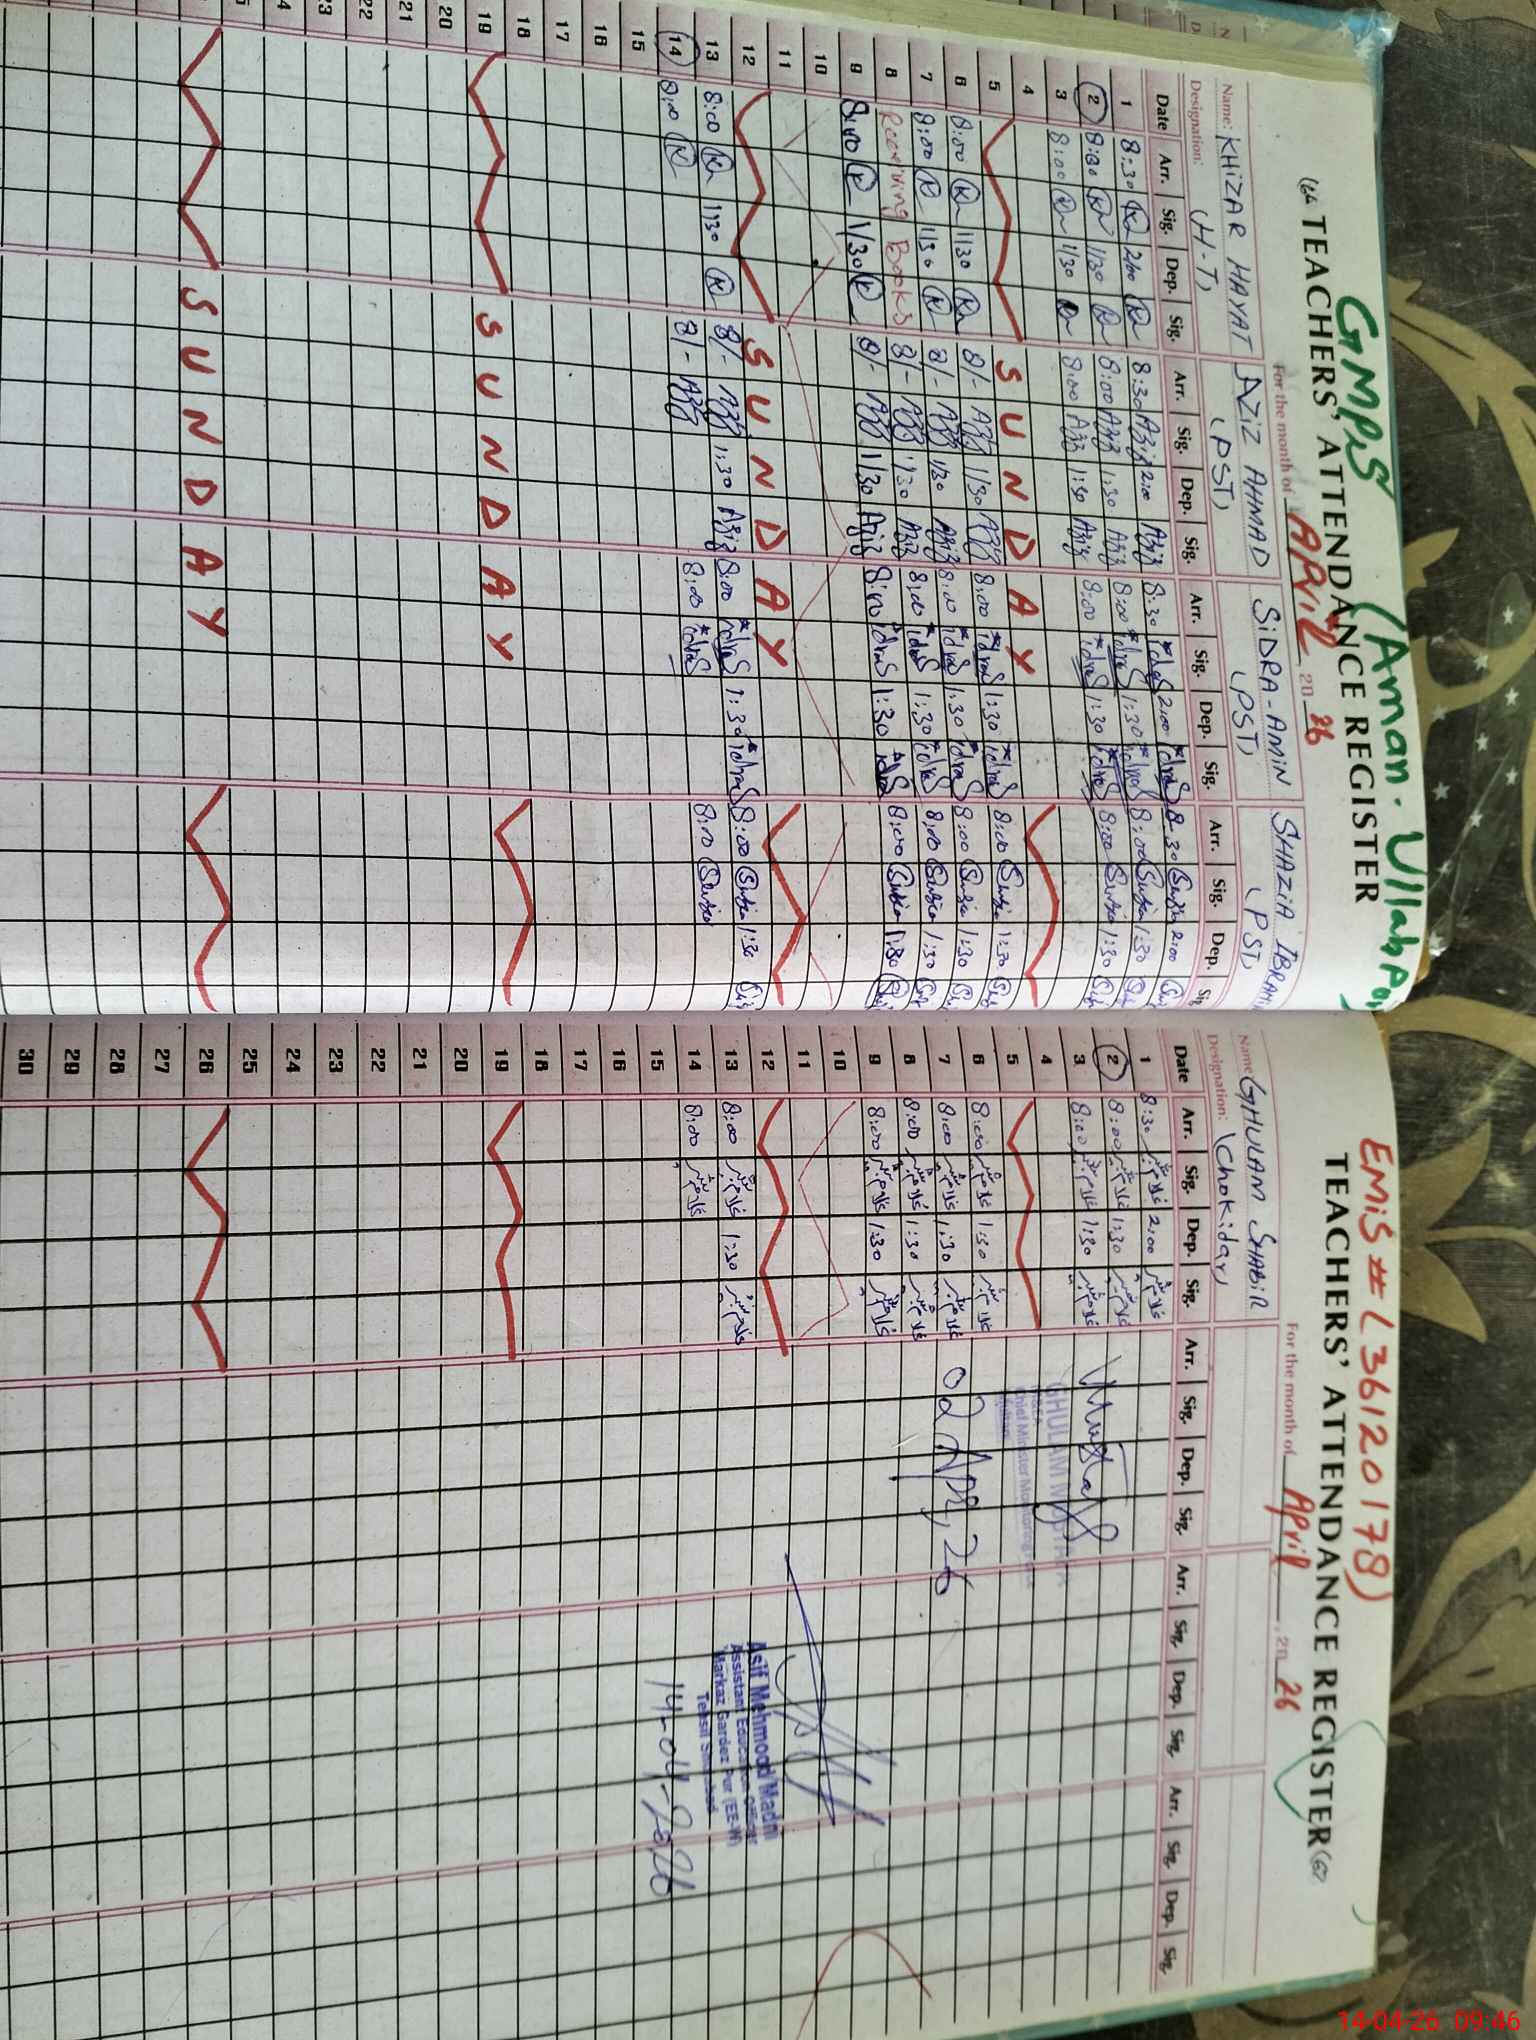 GMP/S (Aman. Ullah Po
(64 TEACHERS' ATTENDANCE REGISTER
For the month of APRIL 20 26
Name: KHIZAR HAYAT AZIZ AHMAD SIDRA-AMIN SHAZIA IBRAHIM
Designation: (H-T) (PST) (PST) (PST)
Date Arr. Sig. Dep. Sig. Arr. Sig. Dep. Sig. Arr. Sig. Dep. Sig. Arr. Sig. Dep. Sig
1 8:30 2:00 8:30 Aziz 2:00 Aziz 8:30 Sidra 2:00 Sidra 8:30 2:00
2 8:00 1:30 8:00 Aziz 1:30 Aziz 8:00 Sidra 1:30 Sidra 8:00 1:30
3 8:00 1/30 8:00 Aziz 1:30 Aziz 8:00 Sidra 1:30 Sidra 8:00 1:30
4
5 SUNDAY
6 8:00 1/30 8/- 1/30 8:00 Sidra 1:30 Sidra 8:00 1:30
7 8:00 1/30 8/- 1/30 Aziz 8:00 Sidra 1:30 Sidra 8:00 1:30
8 Receiving Books 8/- 1/30 Aziz 8:00 Sidra 1:30 Sidra 8:00 1:30
9 8:00 1/30 8/- 1/30 Aziz 8:00 Sidra 1:30 Sidra 8:00 1:30
10
11
12 SUNDAY
13 8:00 1/30 8/- 1:30 Aziz 8:00 Sidra 1:30 Sidra 8:00 1:30
14 8:00 8/- 8:00 Sidra 8:00
15
16
17
18
19 SUNDAY
20
21
22
23
4
5
SUNDAY
EMIS # (36120178)
TEACHERS' ATTENDANCE REGISTER
For the month of April, 20 26
Name GHULAM SHABIR
Designation: (Chokidar)
Date Arr. Sig. Dep. Sig. Arr. Sig. Dep. Sig. Arr. Sig. Dep. Sig. Arr. Sig. Dep. Sig.
1 8:30 غلام شبیر 2:00 غلام شبیر
2 8:00 غلام شبیر 1:30 غلام شبیر
3 8:00 غلام شبیر 1:30 غلام شبیر
4
5
6 8:00 غلام شبیر 1:30 غلام شبیر
7 8:00 غلام شبیر 1:30 غلام شبیر
8 8:00 غلام شبیر 1:30 غلام شبیر
9 8:00 غلام شبیر 1:30 غلام شبیر
10
11
12
13 8:00 غلام شبیر 1:30 غلام شبیر
14 8:00 غلام شبیر
15
16
17
18
19
20
21
22
23
24
25
26
27
28
29
30
GHULAM MUJTABA
Chief Minister Monitoring
02 APR, 26
Asif Mehmood Madni
Assistant Education Officer
Markaz Gardez Pur (EE-W)
14-04-2026
14-04-26 09:46